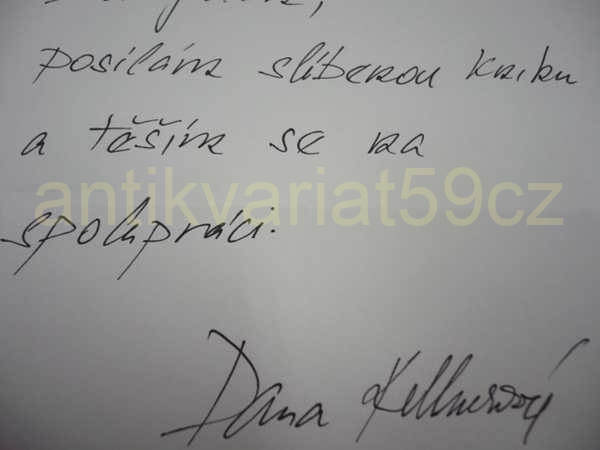 posílám slíbenou knihu
a těším se na
antikvariat59cz
spolupráci.
Dana Kellnerová